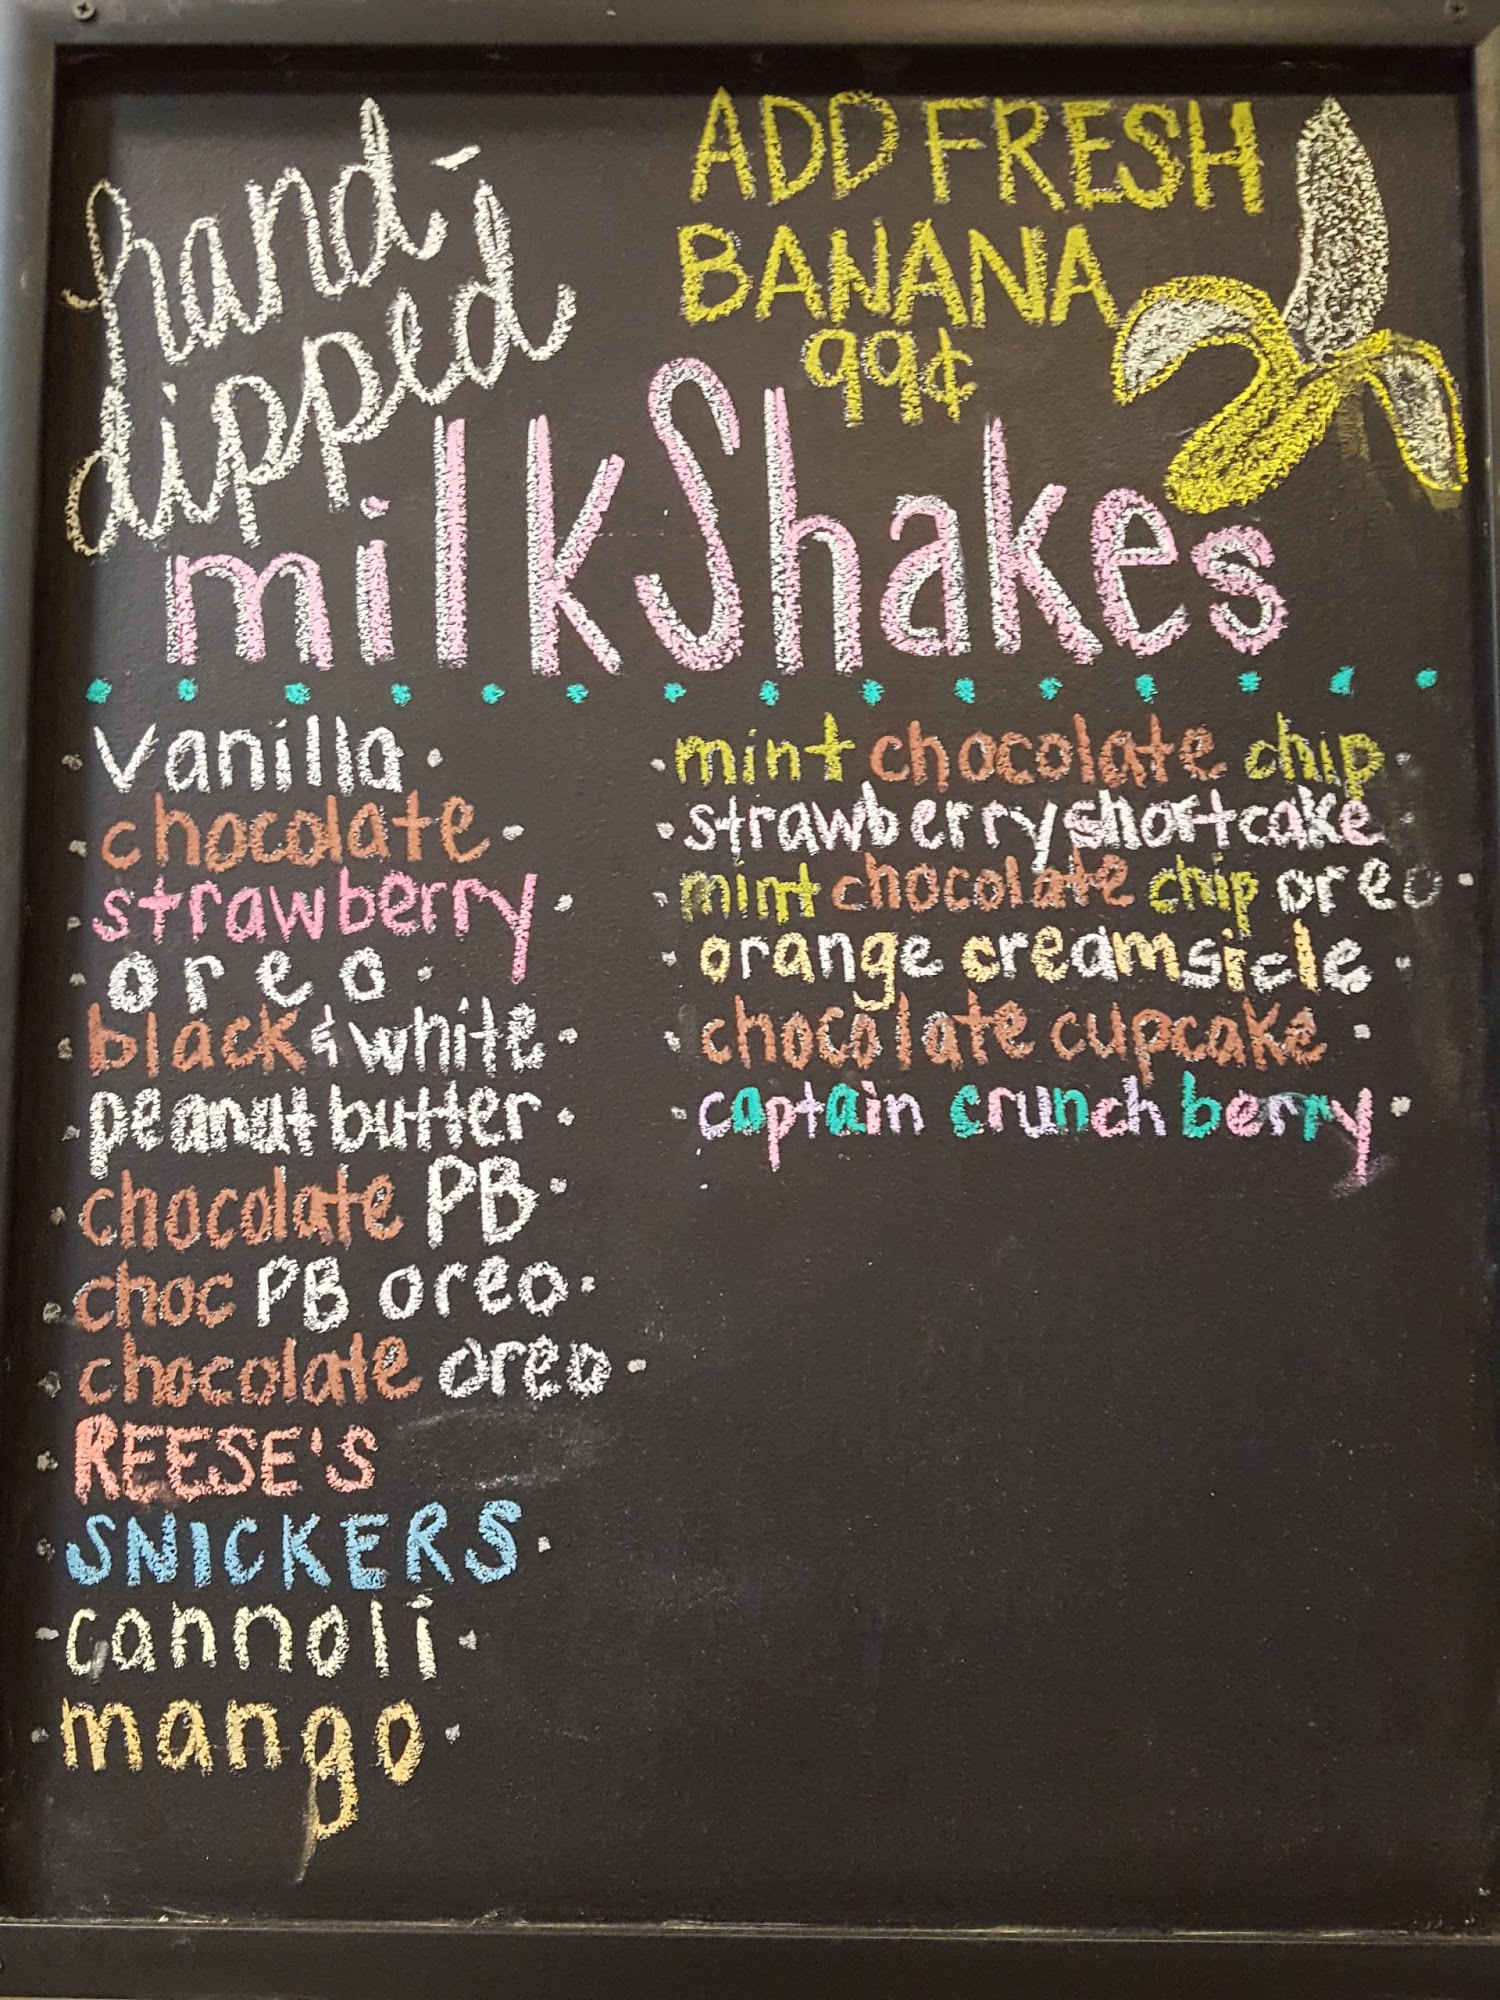 hand-
dipped
ADD FRESH
BANANA
99¢
milkShakes
vanilla
chocolate
strawberry
oreo
black & white
peanut butter
chocolate PB
choc PB oreo
chocolate oreo
REESE'S
SNICKERS
cannoli
mango
mint chocolate chip
strawberry shortcake
mint chocolate chip oreo
orange creamsicle
chocolate cupcake
captain crunch berry